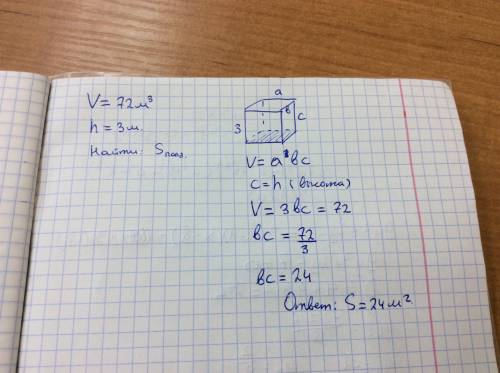 V = 72 м³
h = 3 м.
Найти: Sпол.
a
в
c
3
V = a*вc
c = h (высота)
V = 3вc = 72
вc = 72/3
вc = 24
Ответ: S = 24 м²